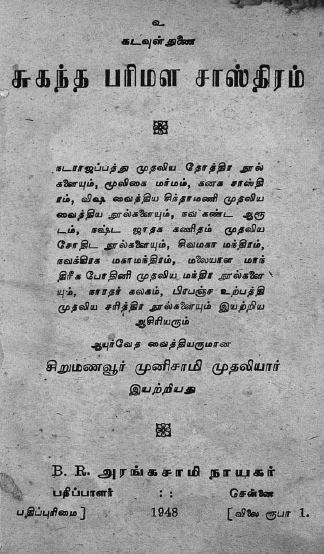 உ
கடவுள் துணை
சுகந்த பரிமள சாஸ்திரம்
நடராஜப்பத்து முதலிய தோத்திர நூல்
களையும், மூலிகை மர்மம், கனக சாஸ்தி
ரம், விஷ வைத்திய சிந்தாமணி முதலிய
வைத்திய நூல்களையும், நவகண்ட ஆரூ
டம், நஷ்ட ஜாதக கணிதம் முதலிய
சோதிட நூல்களையும், சிவமகா மந்திரம்,
நவக்கிரக மகாமந்திரம், மலையாள மாந்
திரிக போதினி முதலிய மந்திர நூல்களை
யும், நாரதர் கலகம், பிரபஞ்ச உற்பத்தி
முதலிய சரித்திர நூல்களையும் இயற்றிய
ஆசிரியரும்
ஆயுர்வேத வைத்தியருமான
சிறுமணவூர் முனிசாமி முதலியார்
இயற்றியது
B. R. அரங்கசாமி நாயகர்
பதிப்பாளர் : : சென்னை
பதிப்புரிமை] 1948 [விலை ரூபா 1.